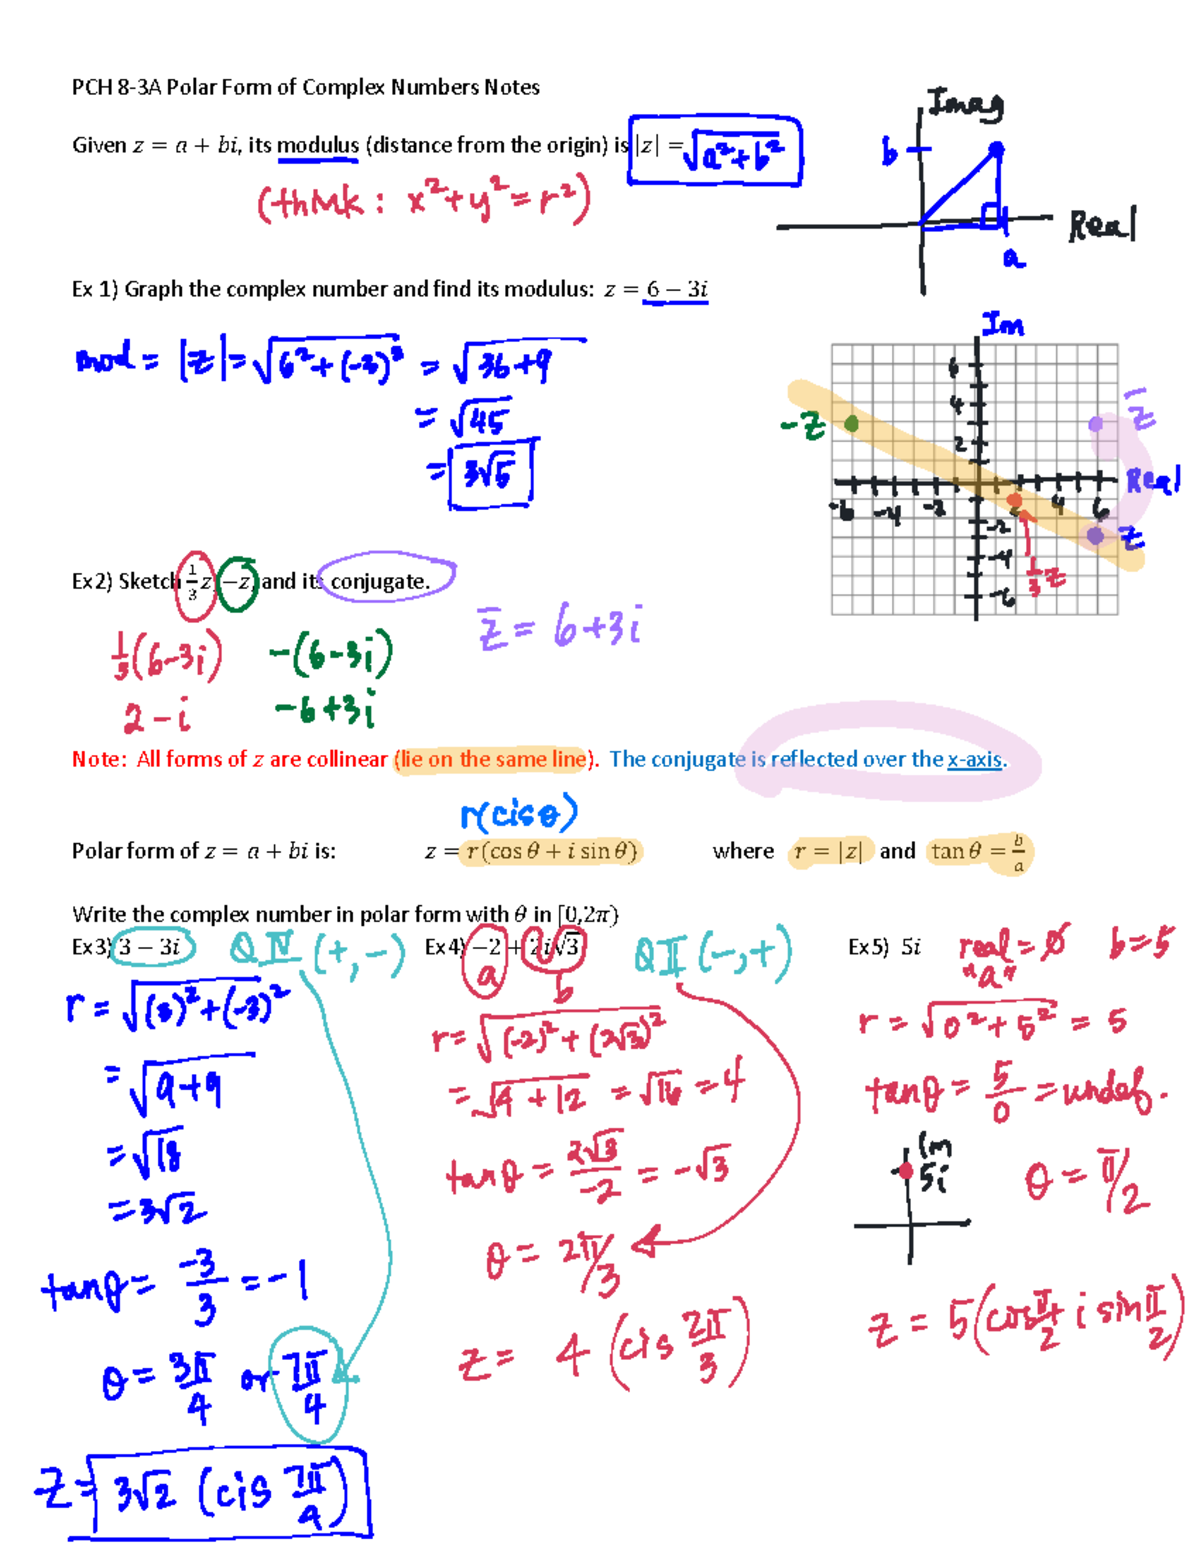 PCH 8-3A Polar Form of Complex Numbers Notes
Imag
Given z = a + bi, its modulus (distance from the origin) is |z| = √(a²+b²)
b
(think: x²+y²=r²)
Real
a
Ex 1) Graph the complex number and find its modulus: z = 6 − 3i
Im
mod = |z| = √(6²+(-3)²) = √(36+9)
= √45
= 3√5
6
4
2
-z
z̄
Real
-6 -4 -2 2 4 6
-2
-4
-6
z
1/3 z
Ex2) Sketch 1/3 z, −z, and its conjugate.
z̄ = 6+3i
1/3(6-3i) -(6-3i)
2-i -6+3i
Note: All forms of z are collinear (lie on the same line). The conjugate is reflected over the x-axis.
r(cisθ)
Polar form of z = a + bi is: z = r(cos θ + i sin θ) where r = |z| and tan θ = b/a
Write the complex number in polar form with θ in [0,2π)
Ex3) 3 − 3i QIV (+,-)
r = √((3)²+(-3)²)
= √(9+9)
= √18
= 3√2
tanθ = -3/3 = -1
θ = 3π/4 or 7π/4
z = 3√2 (cis 7π/4)
Ex4) −2 + 2i√3 QII (-,+)
a b
r = √((-2)²+(2√3)²)
= √(4+12) = √16 = 4
tanθ = 2√3/-2 = -√3
θ = 2π/3
z = 4 (cis 2π/3)
Ex5) 5i real = 0 b=5
"a"
r = √(0²+5²) = 5
tanθ = 5/0 = undef.
Im
5i
θ = π/2
z = 5(cos π/2 + i sin π/2)